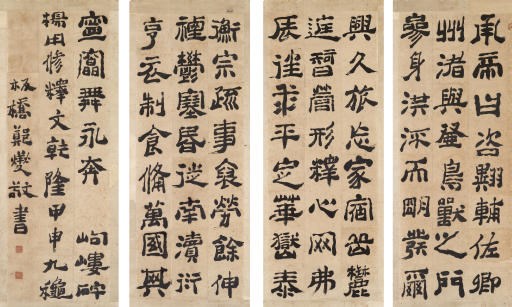 承帝曰咨翼輔佐卿
州渚與登鳥獸之門
參身洪流而明發爾
興久旅忘家宿岳麓
庭智營形釋心罔弗
辰往求平定華嶽泰
衡宗疏事裒勞餘伸
禋鬱塞昏徙南瀆衍
亨衣制食備萬國其
寧竄舞永奔 岣嶁碑
楊用修釋文乾隆甲申九秋
板橋鄭燮敬書